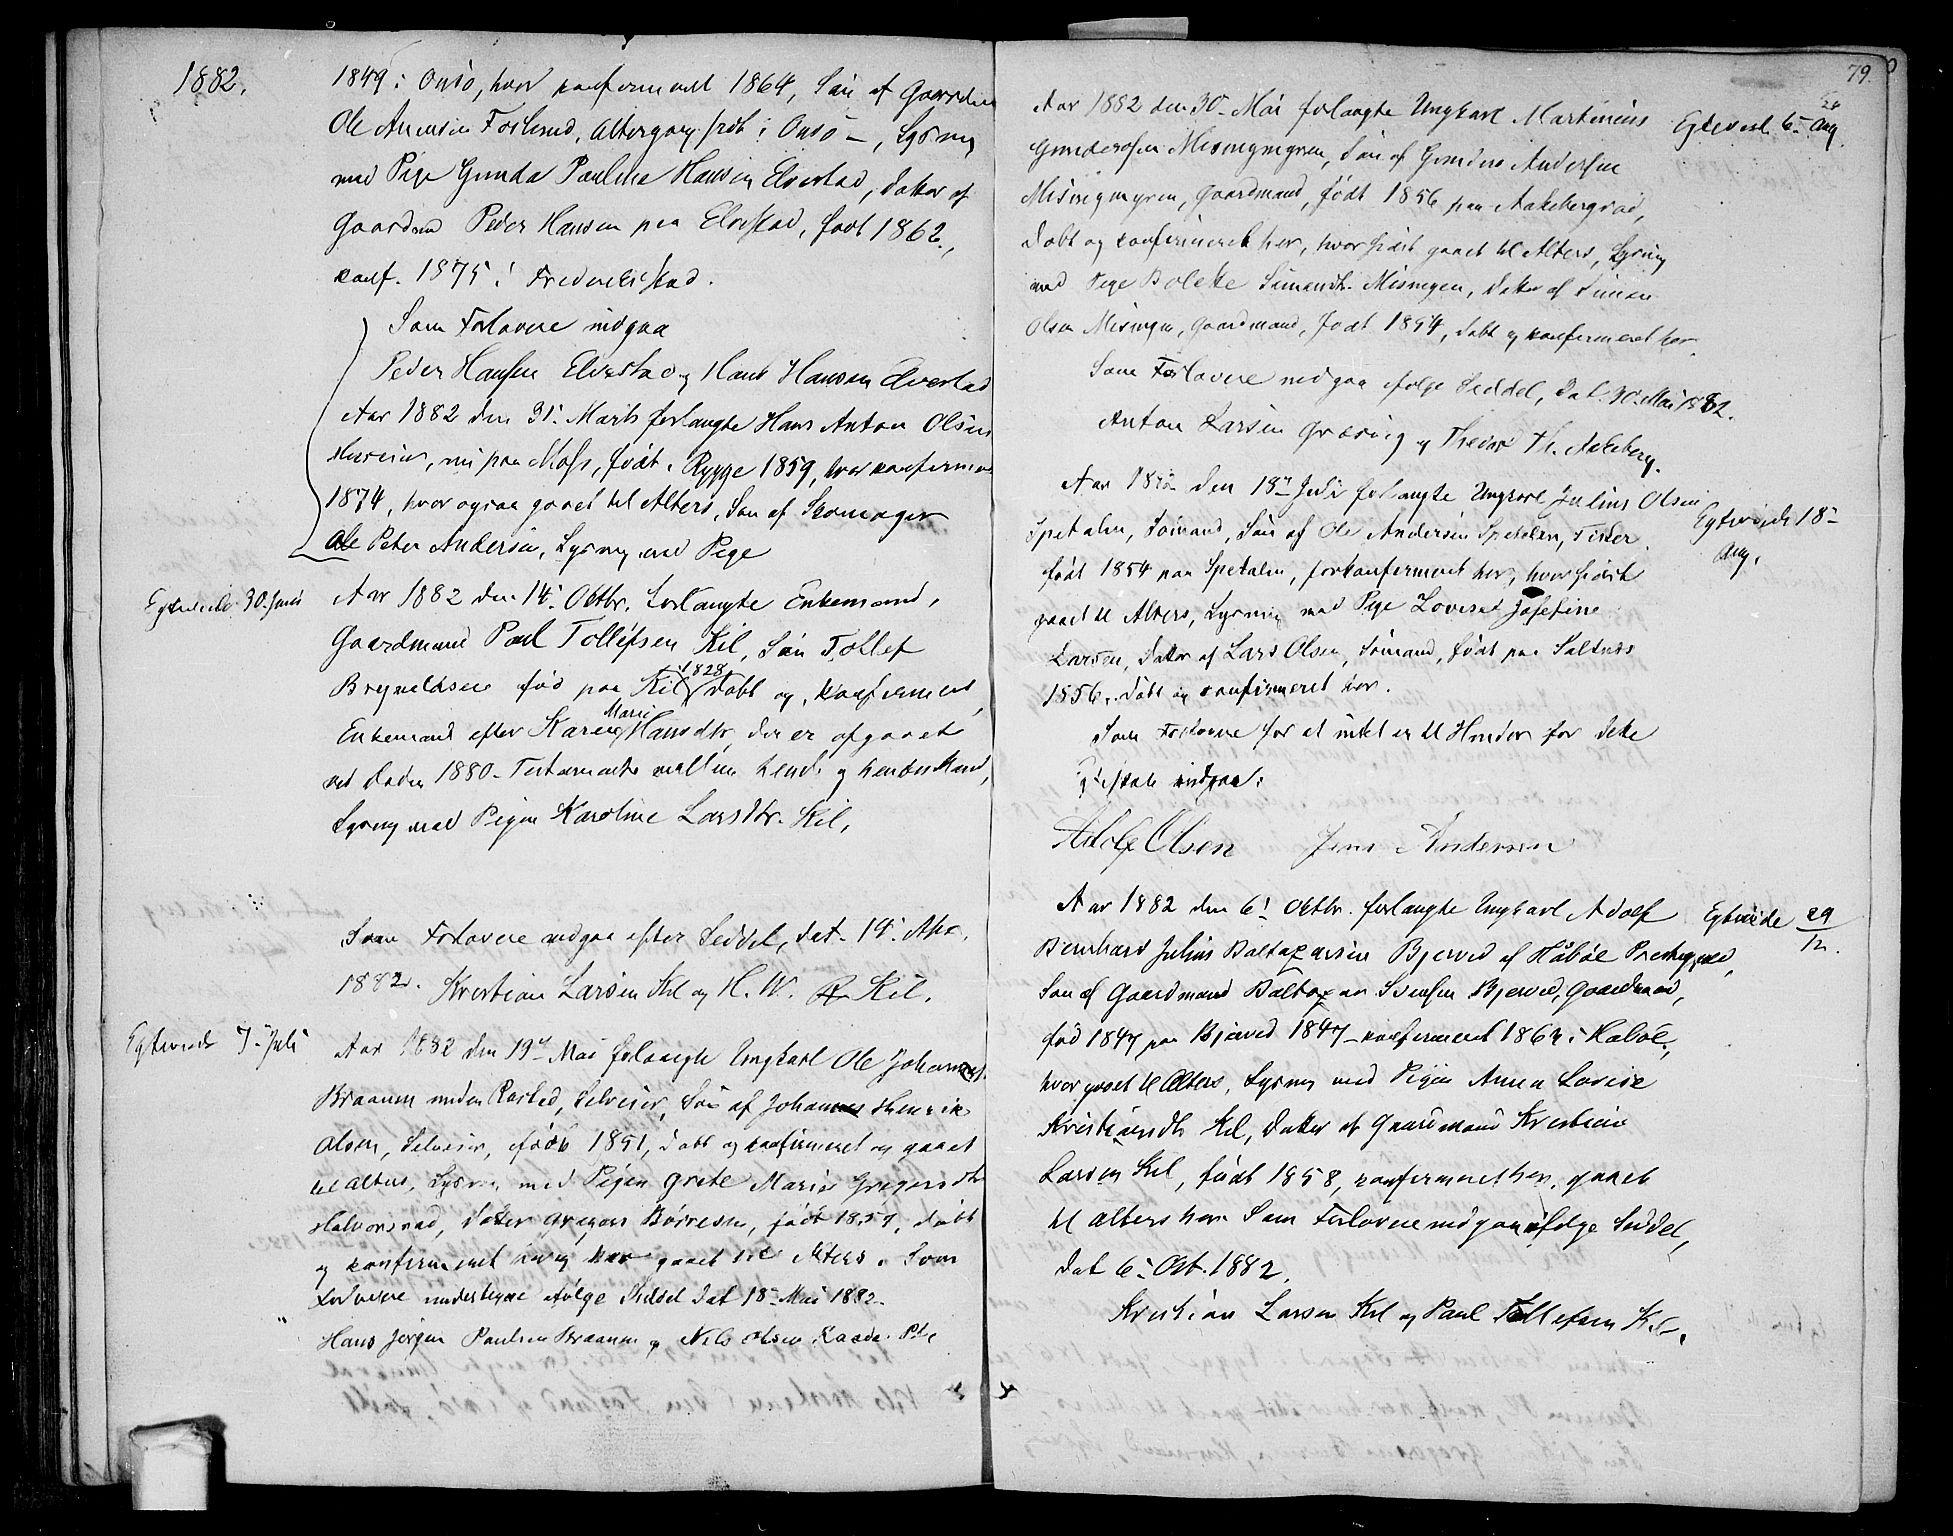 1882.
1849 i Onsö, hvor konfirmeret 1864, Sön af Gaardm
Ole Foslund, Altergang sidst i Onsö –, Lysning
med Pige Gunda Pauline Hansen Elvestad, Datter af
Gaardm Peder Hansen paa Elvestad, født 1862.,
konf. 1875 i Frederikstad.
Som Forlovere indgaa
Peder Hansen Elvestad og Hans Hansen Elvestad
Aar 1882 den 31. Marts forlangte Hans Anton Olsen
nu paa Moss, født i Rygge 1859, hvor konfirmeret
1874, hvor ogsaa gaaet til Alters, Søn af Skomager
Ole Peter Andersen, Lysning med Pige
Egteviede 30. Juni
Aar 1882 den 14. Oktbr. forlangte Enkemand,
Gaardmand Paul Tollefsen Kil, Søn Tollef
Brynildsen fød paa Kil 1828 Døbt og konfirmeret,
Enkemand efter Karen Marie Hansdtr, der er afgaaet
ved Døden 1880. Testamente mellem hende og hendes Mand,
Lysning med Pigen Karoline Larsdtr. Kil,
Som Forlovere indgaa efter Seddel, dat. 14. Apr.
1882. Kristian Larsen Kil og H. W. Kil.
Egteviede 7. Juli
Aar 1882 den 19. Mai forlangte Ungkarl Ole Johannes.
Braanum under Rosted, Selveier, Søn af Johannes Henrik
Olsen, Selveier, født 1851, døbt og konfirmeret og gaaet
til Alters, Lysning med Pigen Grete Marie Gregersdtr
Halvorsrød, Datter Gregers Børresen, født 1857, Døbt
og konfirmeret her og her gaaet til Alters. Som
Forlovere ifølge Seddel Dat 18. Mai 1882.
Hans Jørgen Paulsen Braanum og Nils Olsen Raade. Pl
79.
Aar 1882 den 30. Mai forlangte Ungkarl Martinius
Egteviet. 6. Aug.
Gundersen Missingmyren, Søn af Gunder Andersen
Missingmyren, Gaardmand, født 1856 paa Aakebergrød,
Døbt og konfirmeret her, hvor sidst gaaet til Alters, Lysning
med Pige Bolette Simensdtr. Missingen, Datter af Simen
Olsen Missingen, Gaardmand, født 1854, døbt og konfirmeret her.
Som Forlovere indgaa ifølge Seddel, Dat. 30. Mai 1882.
Anton Larsen og Theodor Th. Aakeberg.
Aar 1882 den 18. Juli forlangte Ungkarl Julius Olsen
Egteviede 18. Aug.
Spetalen, Sømand, Søn af Ole Andersen Spetalen, Fisker.
født 1854 paa Spetalen, konfirmeret her, hvor sidst
gaaet til Alters, Lysning med Pige Lovise Josefine
Larsen, Datter af Lars Olsen, Sømand, født paa Saltnes
1856, døbt og konfirmeret her.
Som Forlovere for at intet er til Hinder for dette
Egteskab indgaa:
Adolf Olsen Jens Andersen
Aar 1882 den 6. Oktbr. forlangte Ungkarl Adolf
Egteviede 29/12.
Bernhard Julius Baltazarsen Bjerved af Håbøl Prestegjeld,
Søn af Gaardmand Baltazar Svensen Bjerved, Gaardmand,
fød 1847 paa Bjerved 1847 – konfirmeret 1862 i Håbøl,
hvor gaaet til Alters, Lysning med Pigen Anna Lovise
Kristiansdtr Kil, Datter af Gaardmand Kristian
Larsen Kil, født 1858, konfirmeret her, gaaet
til Alters her. Som Forlovere indgaa ifølge Seddel,
Dat 6. Okt. 1882.
Kristian Larsen Kil og Paul Tollefsen Kil.